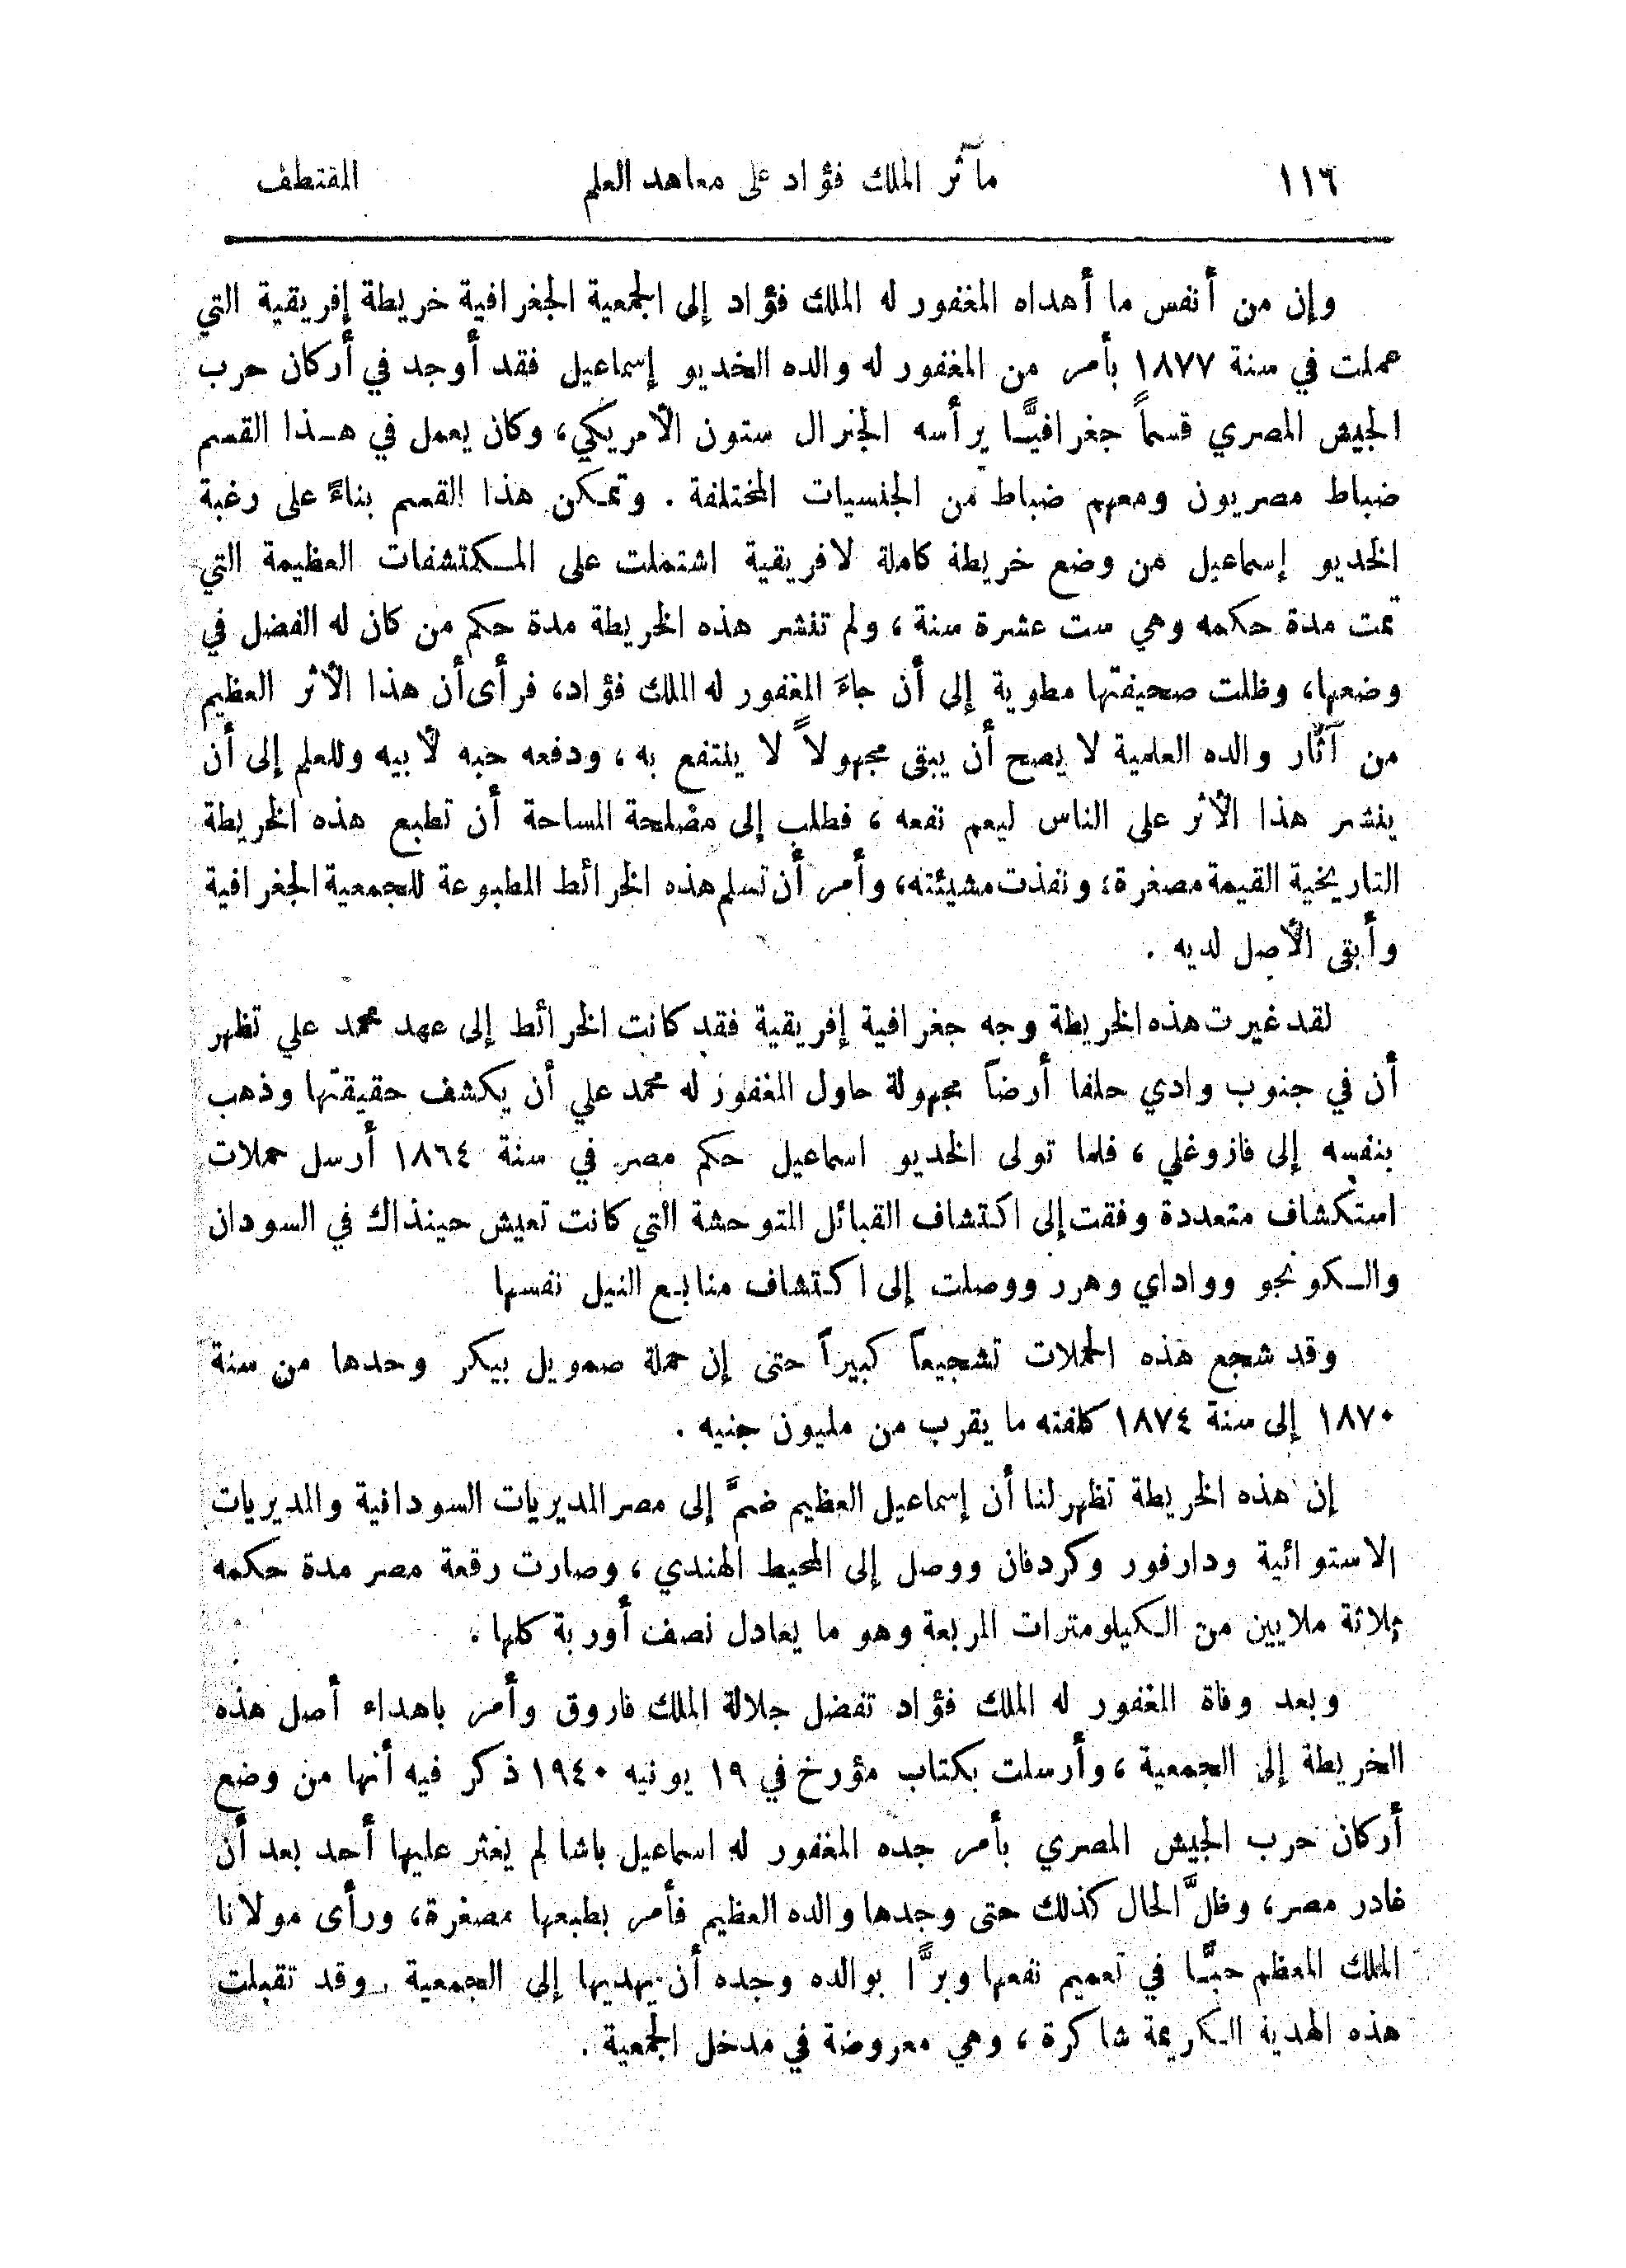 ١١٦ مآثر الملك فؤاد على معاهد العلم المقتطف
وإن من أنفس ما أهداه المغفور له الملك فؤاد إلى الجمعية الجغرافية خريطة إفريقية التي
عملت في سنة ١٨٧٧ بأمر من المغفور له والده الخديو إسماعيل فقد أوجد في أركان حرب
الجيش المصري قسماً جغرافيًّا يرأسه الجنرال ستون الأمريكي، وكان يعمل في هذا القسم
ضباط مصريون ومعهم ضباط من الجنسيات المختلفة . وتمكن هذا القسم بناءً على رغبة
الخديو إسماعيل من وضع خريطة كاملة لافريقية اشتملت على المكتشفات العظيمة التي
تمت مدة حكمه وهي ست عشرة سنة ، ولم تنشر هذه الخريطة مدة حكم من كان له الفضل في
وضعها، وظلت صحيفتها مطوية إلى أن جاءَ المغفور له الملك فؤاد، فرأى أن هذا الأثر العظيم
من آثار والده العلمية لا يصح أن يبقى مجهولاً لا ينتفع به ، ودفعه حبه لأبيه وللعلم إلى أن
ينشر هذا الأثر على الناس ليعم نفعه ، فطلب إلى مصلحة المساحة أن تطبع هذه الخريطة
التاريخية القيمة مصغرة؛ ونفذت مشيئته، وأمر أن تسلم هذه الخرائط المطبوعة للجمعية الجغرافية
وأبقى الأصل لديه .
لقد غيرت هذه الخريطة وجه جغرافية إفريقية فقد كانت الخرائط إلى عهد محمد علي تظهر
أن في جنوب وادي حلفا أرضاً مجهولة حاول المغفور له محمد علي أن يكشف حقيقتها وذهب
بنفسه إلى فازوغلي ، فلما تولى الخديو اسماعيل حكم مصر في سنة ١٨٦٤ أرسل حملات
استكشاف متعددة وفقت إلى اكتشاف القبائل المتوحشة التي كانت تعيش حينذاك في السودان
والكونجو وواداي وهرر ووصلت إلى اكتشاف منابع النيل نفسها
وقد شجع هذه الحملات تشجيعاً كبيراً حتى إن حملة صمويل بيكر وحدها من سنة
١٨٧٠ إلى سنة ١٨٧٤ كلفته ما يقرب من مليون جنيه .
إن هذه الخريطة تظهر لنا أن إسماعيل العظيم ضمَّ إلى مصر المديريات السودانية والمديريات
الاستوائية ودارفور وكردفان ووصل إلى المحيط الهندي ، وصارت رقعة مصر مدة حكمه
ثلاثة ملايين من الكيلومترات المربعة وهو ما يعادل نصف أوربة كلها .
وبعد وفاة المغفور له الملك فؤاد تفضل جلالة الملك فاروق وأمر باهداء أصل هذه
الخريطة إلى الجمعية ، وأرسلت بكتاب مؤرخ في ١٩ يونيه ١٩٤٠ ذكر فيه أنها من وضع
أركان حرب الجيش المصري بأمر جده المغفور له اسماعيل باشا لم يعثر عليها أحد بعد أن
غادر مصر، وظلَّ الحال كذلك حتى وجدها والده العظيم فأمر بطبعها مصغرة، ورأى مولانا
الملك المعظم حبًّا في تعميم نفعها وبرًّا بوالده وجده أن يهديها إلى الجمعية . وقد تقبلت
هذه الهدية الكريمة شاكرة ، وهي معروضة في مدخل الجمعية .